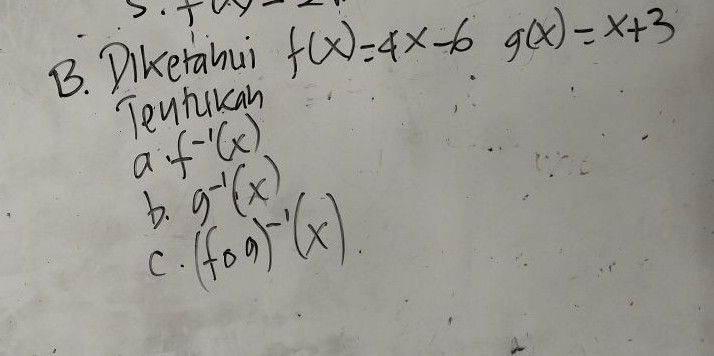 B. Diketahui f(x)=4x-6 g(x)=x+3
Tentukan
a. f⁻¹(x)
b. g⁻¹(x)
c. (fog)⁻¹(x).